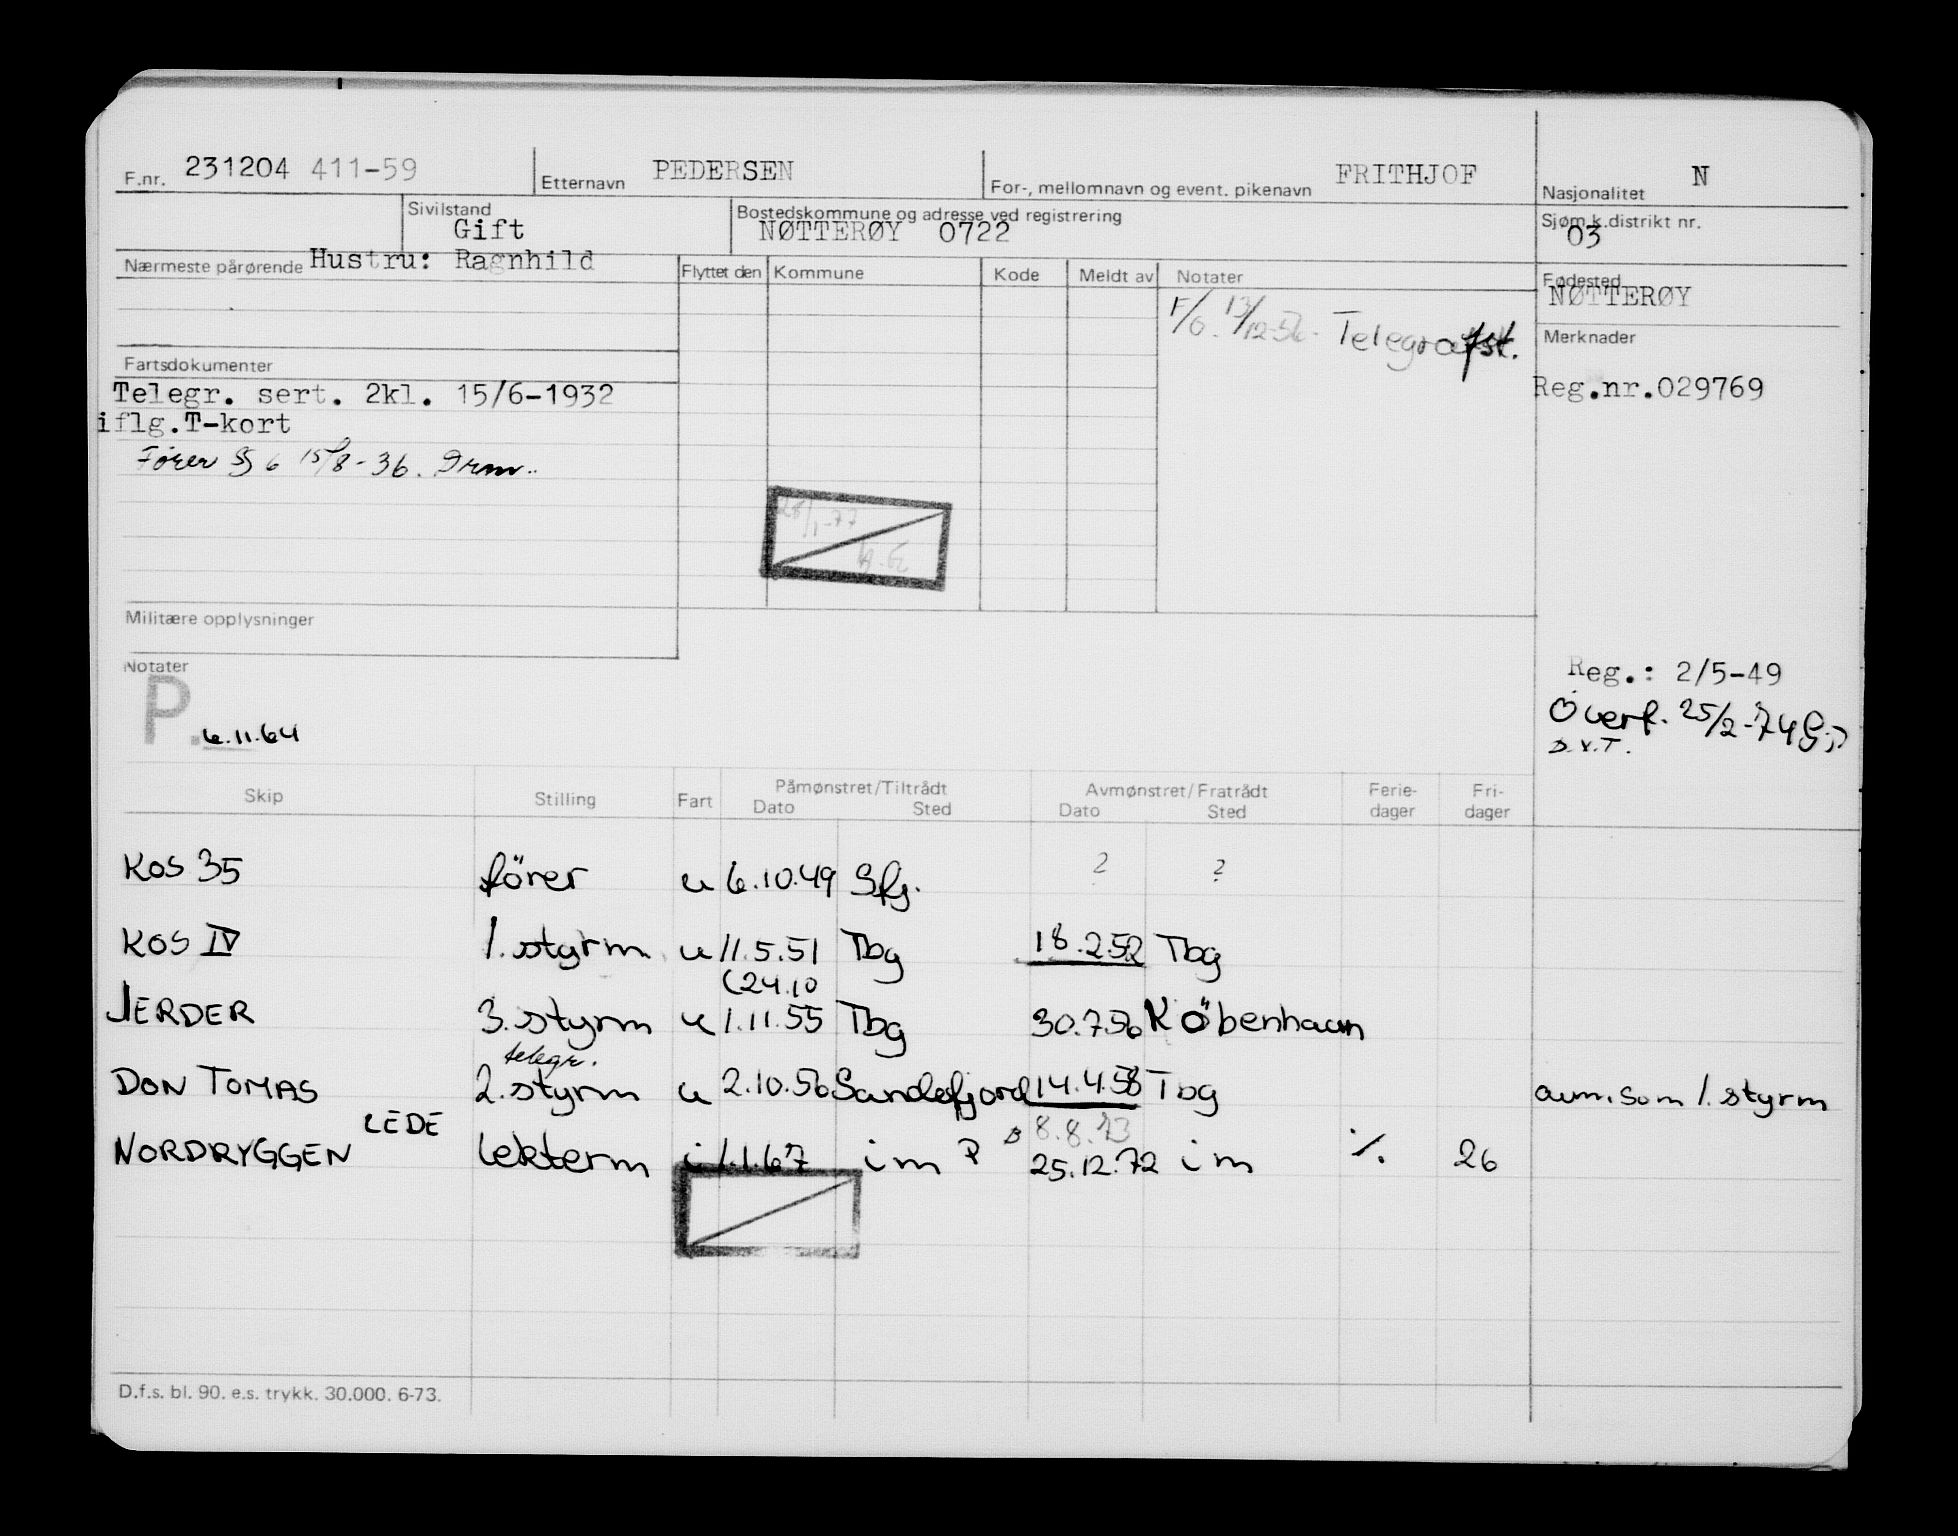 F.nr. 231204 411-59 Etternavn PEDERSEN For-, mellomnavn og event. pikenavn FRITHJOF Nasjonalitet N
Sivilstand Gift Bostedskommune og adresse ved registrering NØTTERØY 0722 Sjøm.k.distrikt nr. 03
Nærmeste pårørende Hustru: Ragnhild Flyttet den Kommune Kode Meldt av Notater Fødested NØTTERØY
F/6. 13/12-56. Telegrafst.
Merknader
Fartsdokumenter
Telegr. sert. 2kl. 15/6-1932 Reg.nr.029769
iflg.T-kort
Fører § 6 15/8-36. Drm.
25/1-77
Militære opplysninger
Notater
P. 6.11.64
Reg.: 2/5-49
Överf. 25/2-74
D.V.T.
Skip Stilling Fart Påmønstret/Tiltrådt Dato Sted Avmønstret/Fratrådt Dato Sted Ferie-dager Fri-dager
KOS 35 förer u 6.10.49 Sfj. ? ?
KOS IV 1. styrm u 11.5.51 Tbg 18.2.52 Tbg
(24.10
JERDER 3. styrm u 1.11.55 Tbg 30.7.56 Köbenhavn
telegr.
DON TOMAS 2. styrm u 2.10.56 Sandefjord 14.4.58 Tbg avm. som 1. styrm
LEDE 8.8.73
NORDRYGGEN lekterm i 1.1.67 im P B 25.12.72 im % 26
D.f.s. bl. 90. e.s. trykk. 30.000. 6-73.